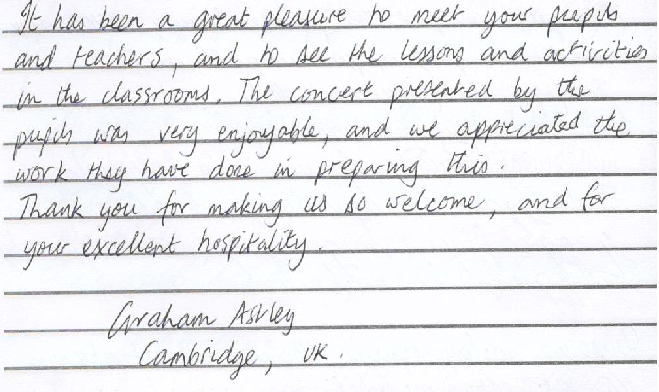 It has been a great pleasure to meet your pupils
and teachers, and to see the lessons and activities
in the classrooms. The concert presented by the
pupils was very enjoyable, and we appreciated the
work they have done in preparing this.
Thank you for making us so welcome, and for
your excellent hospitality.
Graham Astley
Cambridge, UK.